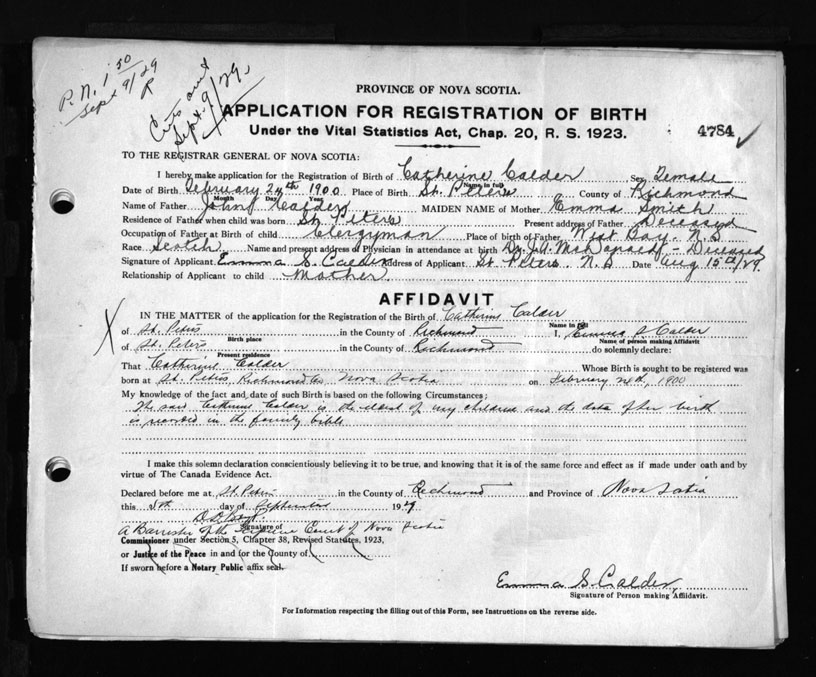 P. N. 1 50
Sept 9/29
R
Sept. 9/29.
PROVINCE OF NOVA SCOTIA.
APPLICATION FOR REGISTRATION OF BIRTH
Under the Vital Statistics Act, Chap. 20, R. S. 1923.
4784
TO THE REGISTRAR GENERAL OF NOVA SCOTIA:
I hereby make application for the Registration of Birth of Catherine Calder Sex Female
Name in full
Date of Birth February 24th 1900 Place of Birth St. Peters County of Richmond
Month Day Year
Name of Father Calder MAIDEN NAME of Mother Emma Smith
Residence of Father when child was born St. Peters Present address of Father Deceased
Occupation of Father at Birth of child Clergyman Place of birth of Father West Bay, N.S
Race Scotch Name and present address of Physician in attendance at birth Dr. - Deceased
Signature of Applicant Emma S. Calder Address of Applicant St. Peters. N.S Date Aug 15th/29.
Relationship of Applicant to child Mother
AFFIDAVIT
IN THE MATTER of the application for the Registration of the Birth of Catherine Calder
Name in full
of St. Peters in the County of Richmond I, Emma S Calder
Birth place Name of person making Affidavit
of St. Peters in the County of Richmond do solemnly declare:
Present residence
That Catherine Calder Whose Birth is sought to be registered was
born at St. Peters Richmond Co. Nova Scotia on February 24th, 1900
My knowledge of the fact and date of such Birth is based on the following Circumstances;
The said Catherine Calder is the eldest of my children and the date of her birth
is recorded in the family bible
I make this solemn declaration conscientiously believing it to be true, and knowing that it is of the same force and effect as if made under oath and by
virtue of The Canada Evidence Act.
Declared before me at St. Peters in the County of Richmond and Province of Nova Scotia
this day of September 1929
Signature of
A Barrister of the Supreme Court of Nova Scotia
Commissioner under Section 5, Chapter 38, Revised Statutes, 1923,
or Justice of the Peace in and for the County of
If sworn before a Notary Public affix seal.
Emma S. Calder
Signature of Person making Affidavit.
For Information respecting the filling out of this Form, see Instructions on the reverse side.